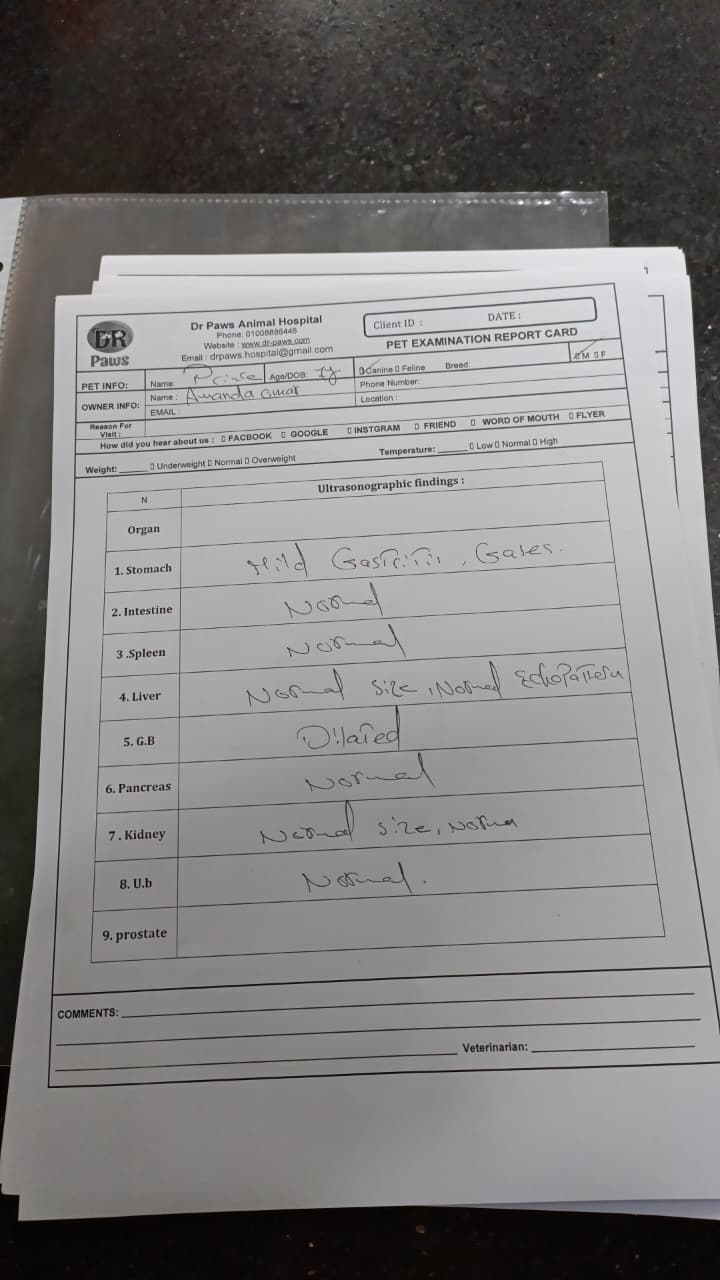 DR
Paws
Dr Paws Animal Hospital
Phone: 01008886446
Website : www.dr-paws.com
Email : drpaws.hospital@gmail.com
Client ID :
DATE :
PET EXAMINATION REPORT CARD
PET INFO: Name: Prince Age/DOB: 7y. Canine Feline Breed: M F
OWNER INFO: Name : Awanda omar Phone Number:
EMAIL : Location :
Reason For Visit :
How did you hear about us : FACBOOK GOOGLE INSTGRAM FRIEND WORD OF MOUTH FLYER
Weight: Underweight Normal Overweight Temperature: Low Normal High
N Ultrasonographic findings :
Organ
1. Stomach Mild Gastritis, Gases.
2. Intestine Normal
3 .Spleen Normal
4. Liver Normal size, Normal Echopattern
5. G.B Dilated
6. Pancreas Normal
7. Kidney Normal size, Norma
8. U.b Normal.
9. prostate
COMMENTS:
Veterinarian: